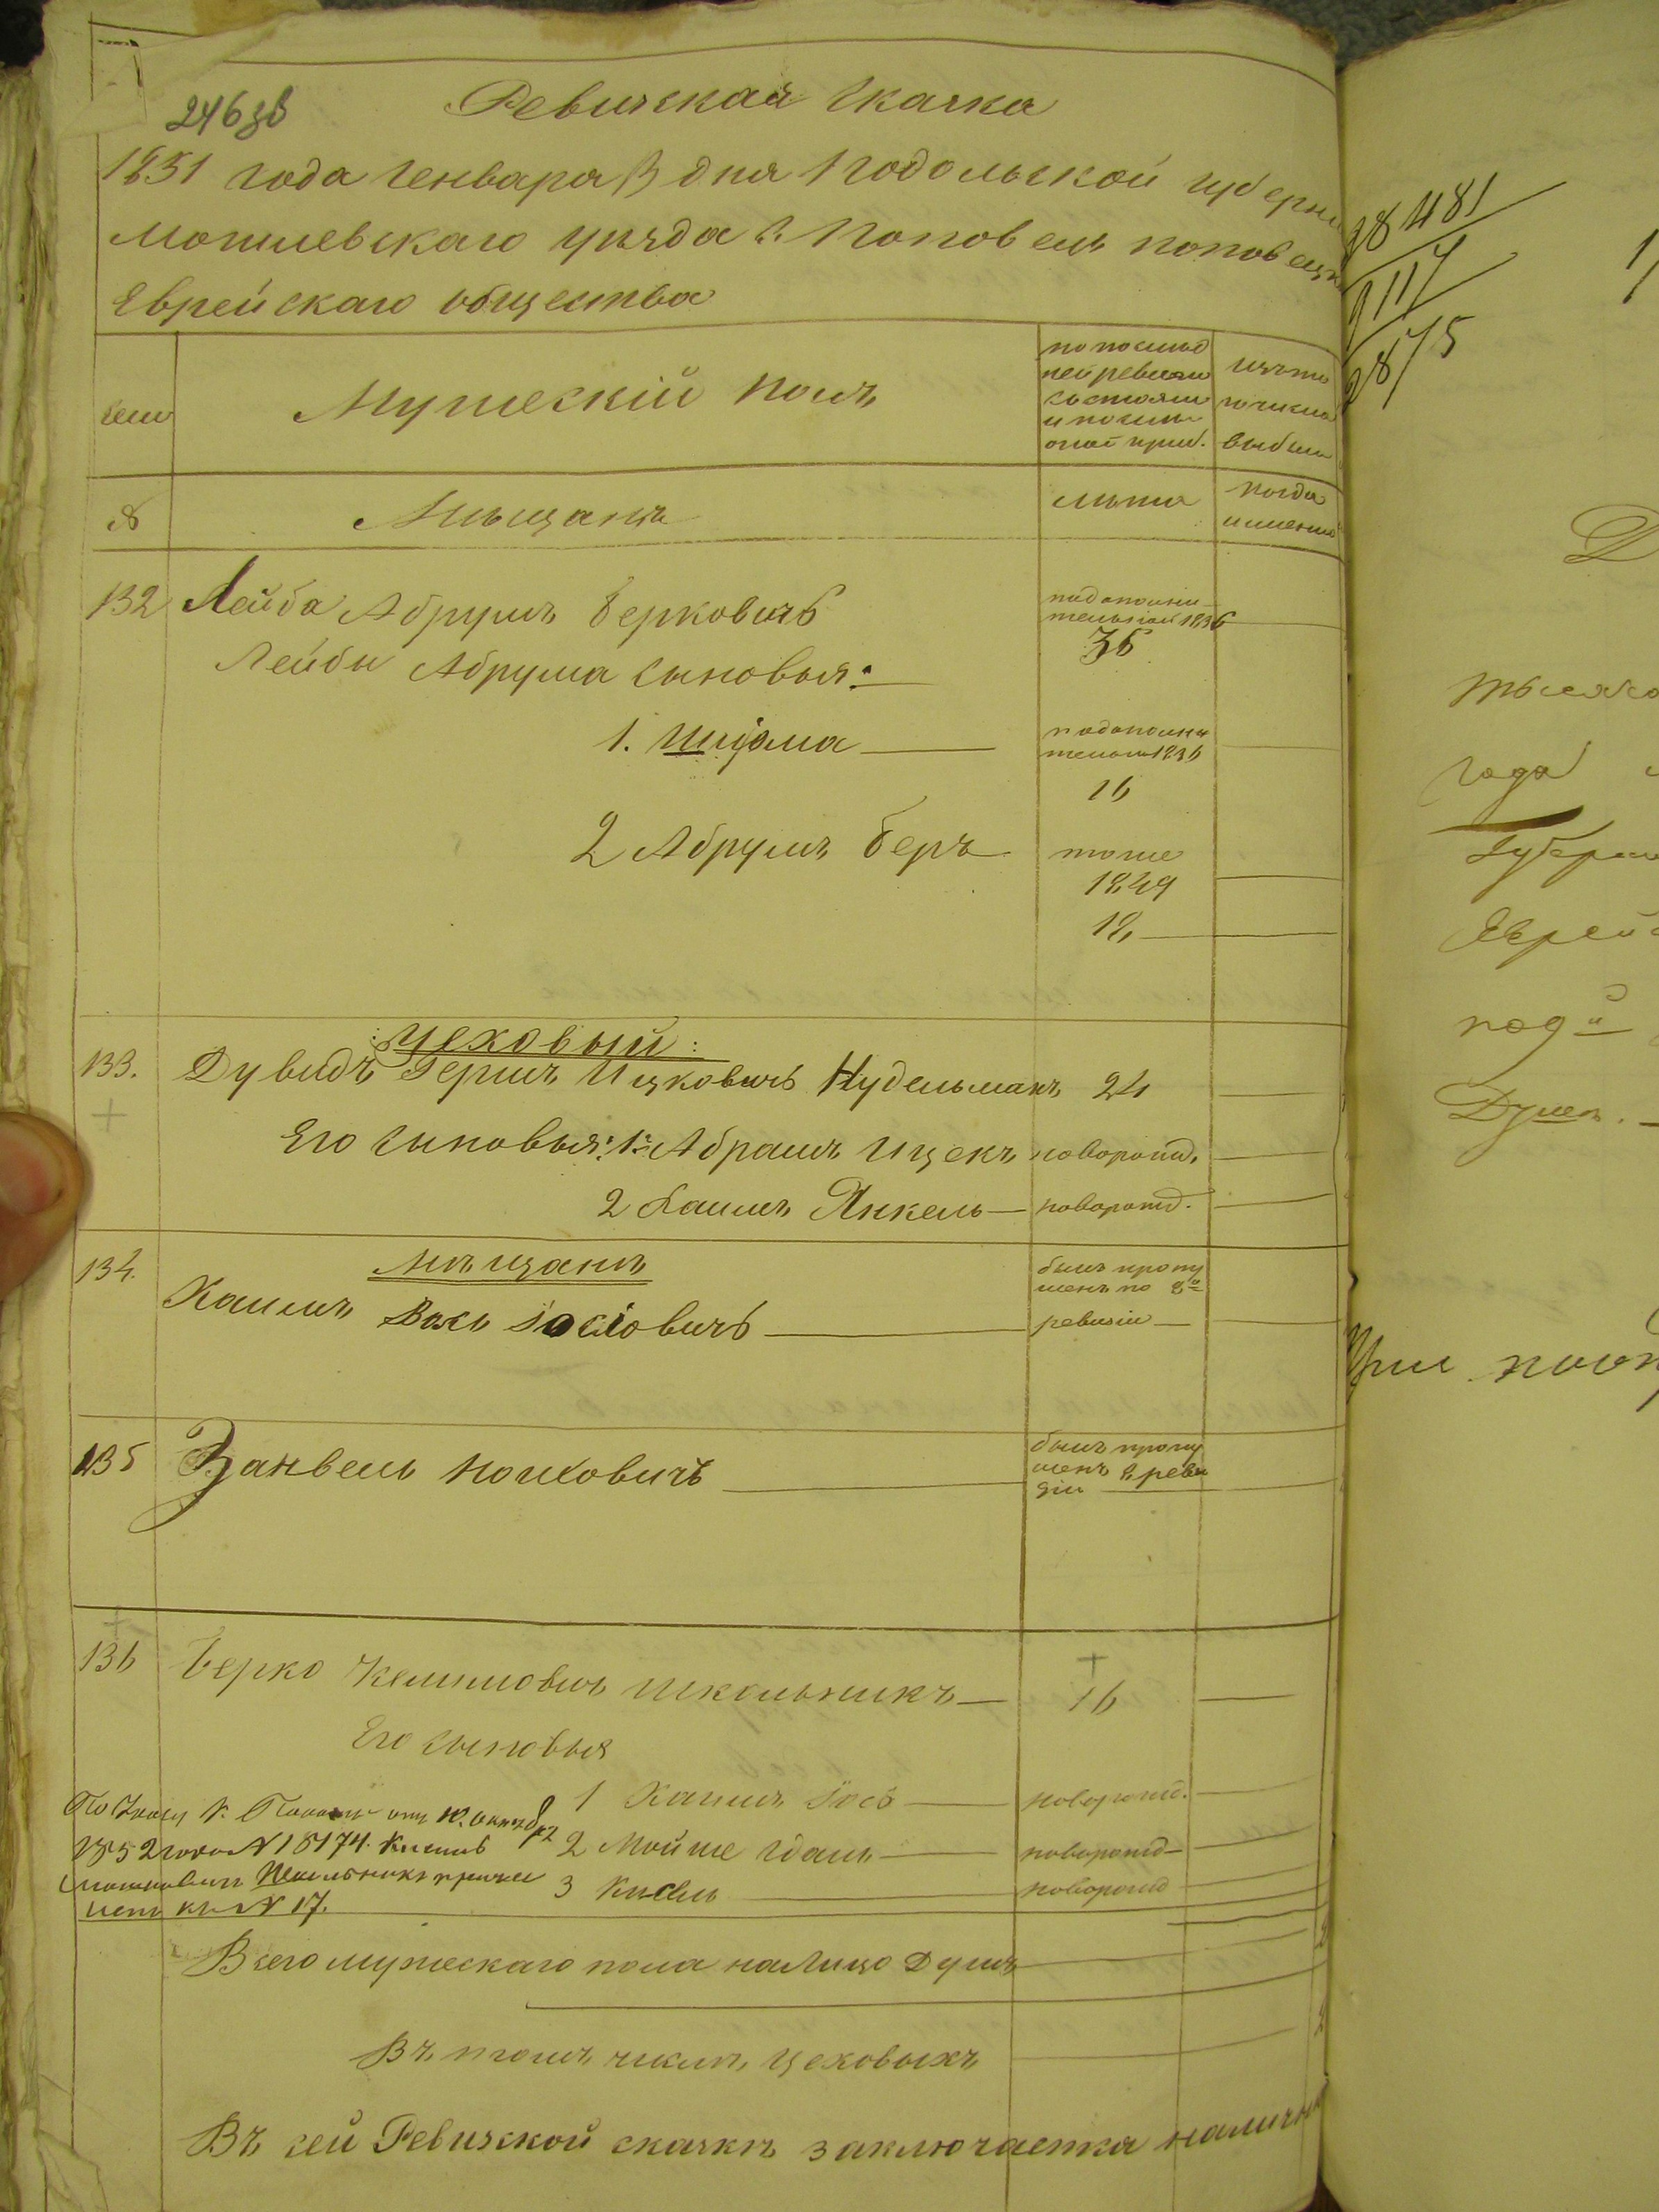 246 зв
Ревизская сказка
1851 года Генваря 13 дня Подольской губерни
Могилевскаго уезда м. Поповец поповецк
Еврейскаго общества
сем
Мужескій полъ
по послед
ней ревизіи
состояли
и после
оной приб.
изъ то
го числа
выбыли
№
Мещанъ
лета
когда
именно
132 Лейба Абрумъ Берковичъ
по дополни
тельной 1836
36
Лейбы Абрума сыновья:
1. Шлома
по дополни
тельной 1836
16
2 Абрумъ Беръ
тоже
1849
18
Цеховый:
133. Дувидъ Гершъ Ицковичъ Нудельманъ 24
Его сыновья: 1. Абрамъ Ицекъ новорожд.
2 Хаимъ Янкель новорожд.
134. Мещанъ
Хаимъ Вольъ Іосіовичъ
былъ пропу
щенъ по 8й
ревизіи
135 Занвель Йолховичъ
былъ пропу
щенъ 8 реви
зіи
136 Берко Хелимовичъ Школьникъ 16
Его сыновья
1 Хаимъ Іось новорожд.
2 Мойше Гдаль новорожд
3 Кисель новорожд
По Указу К. Палаты отъ 10. октября
1852 года № 18174. Кисель
Школьникъ причи
ленъ къ № 17.
Всего мужескаго пола на лицо душъ
Въ томъ числе цеховыхъ
Въ сей Ревизской сказке заключается наличны
28 481
9117
2875
Д
тысяча
года
Губерн
Еврейс
под й
Душъ.
При пода